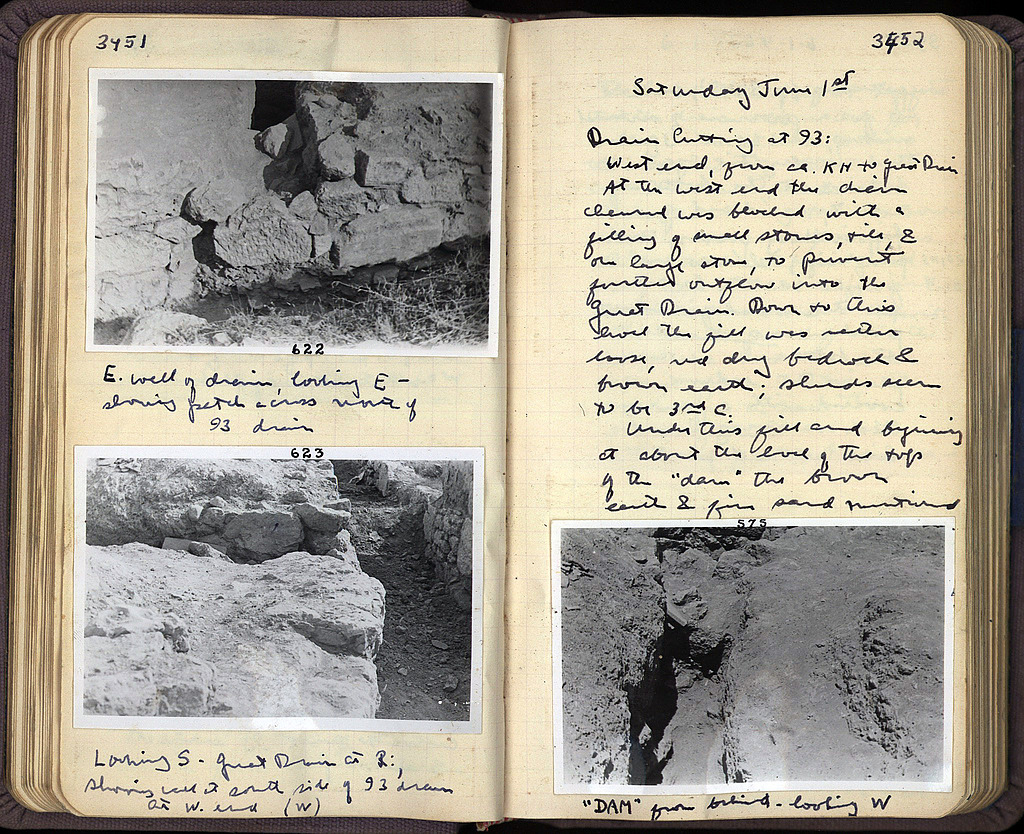 3451
622
E. wall of drain, looking E -
showing patch across mouth of
93 drain
623
Looking S - Great Drain at R;
showing wall at south side of 93 drain
at W. end (W)
3452
Saturday June 1st
Drain Cutting at 93:
West end, from ca. KH to Great Drain
At the west end the drain
channel was blocked with a
filling of small stones, tile, &
one large stone, to prevent
further outflow into the
Great Drain. Down to this
level the fill was rather
loose, dug bedrock &
brown earth; sherds seem
to be 3rd c.
Under this fill and beginning
at about the level of the tops
of the "dam" the brown
earth & fine sand mentioned
575
"DAM" from behind - looking W